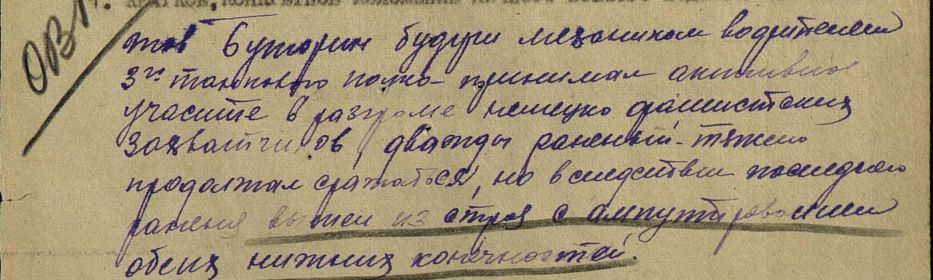 КРАТКОЕ, КОНКРЕТНОЕ ИЗЛОЖЕНИЕ
ОВ1.
тов Буторин будучи механиком водителем
3го танкового полка принимал активное
участие в разгроме немецко фашистских
захватчиков, дважды раненый тяжело
продолжал сражаться, но вследствии последнего
раненя вышел из строя с ампутированием
обеих нижних конечностей.